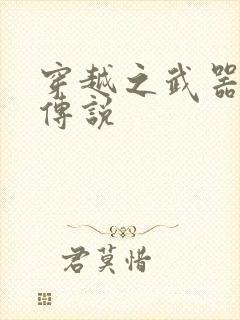 穿越之武器
傳說
君莫惜